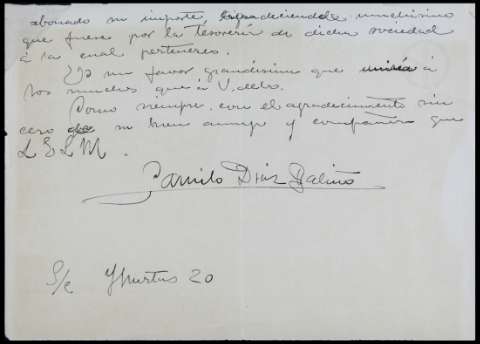 abonado su importe, agradeciendole muchisimo
que fuese por la tesoreria de dicha sociedad
á la cual pertenezco.
Es un favor grandisimo que uniré á
los muchos que á V. debo.
Como siempre, con el agradecimiento sin
cero de su buen amigo y compañero que
L E L M.
Camilo Diaz Baliño
S/c Huertas 20